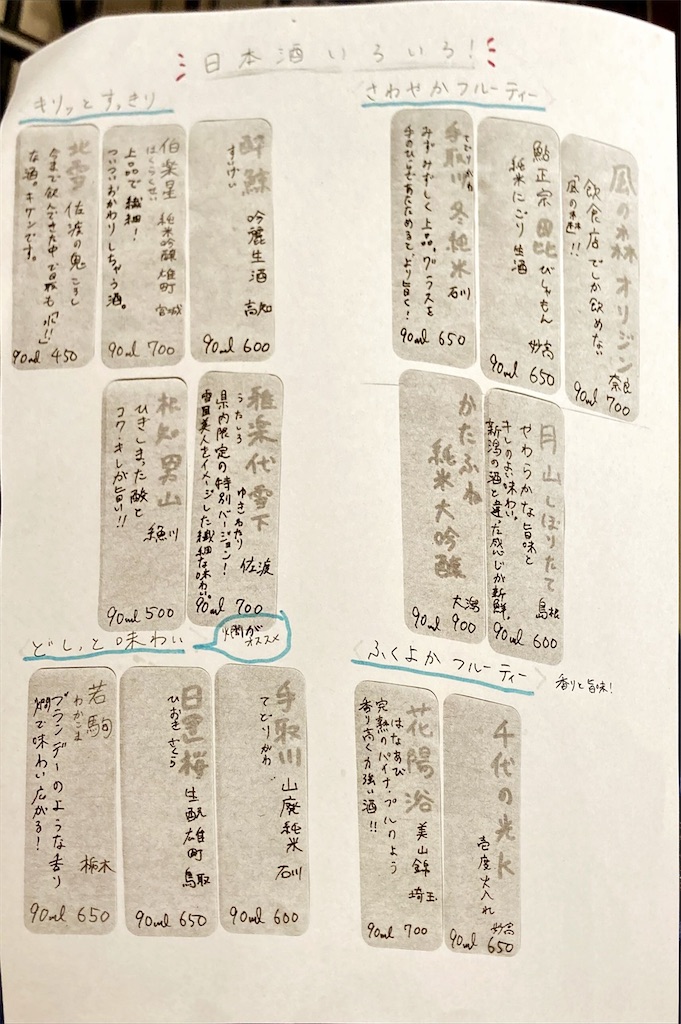 日本酒いろいろ!
キリッとすっきり
酔鯨
すいげい
吟麗生酒
高知
90ml 600
伯楽星 純米吟醸 雄町
はくらくせい
宮城
上品で繊細!
ついついおかわりしちゃう酒。
90ml 700
北雪 佐渡の鬼ころし
今まで飲んできた中で最も「水」!!
な酒。キケンです。
90ml 450
雅楽代 雪下
うたしろ ゆきおわり
佐渡
県内限定の特別バージョン!
雪国美人をイメージした繊細な味わい。
90ml 700
根知男山
糸魚川
ひきしまった酸と
コク・キレが旨い!!
90ml 500
さわやかフルーティー
風の森 オリジン
奈良
飲食店でしか飲めない
「風の森」!!
90ml 700
鮎正宗 毘 びしゃもん
妙高
純米にごり生酒
90ml 650
手取川 冬純米
てどりがわ
石川
みずみずしく上品。グラスを
手のひらであたためると、より旨く!
90ml 650
月山しぼりたて
島根
やわらかな旨味と
キレのよい味わい。
新潟の酒と違った感じが新鮮。
90ml 600
かたふね
純米大吟醸
大潟
90ml 900
どしっと味わい
燗が
オススメ
手取川 山廃純米
てどりがわ
石川
90ml 600
日置桜 生酛雄町
ひおきざくら
鳥取
90ml 650
若駒
わかこま
栃木
ブランデーのような香り
燗で味わい広がる!
90ml 650
ふくよかフルーティー
香りと旨味!
千代の光 K
壱度火入れ
妙高
90ml 650
花陽浴 美山錦
はなあび
埼玉
完熟のパイナップルのよう
香り高く力強い酒!!
90ml 700